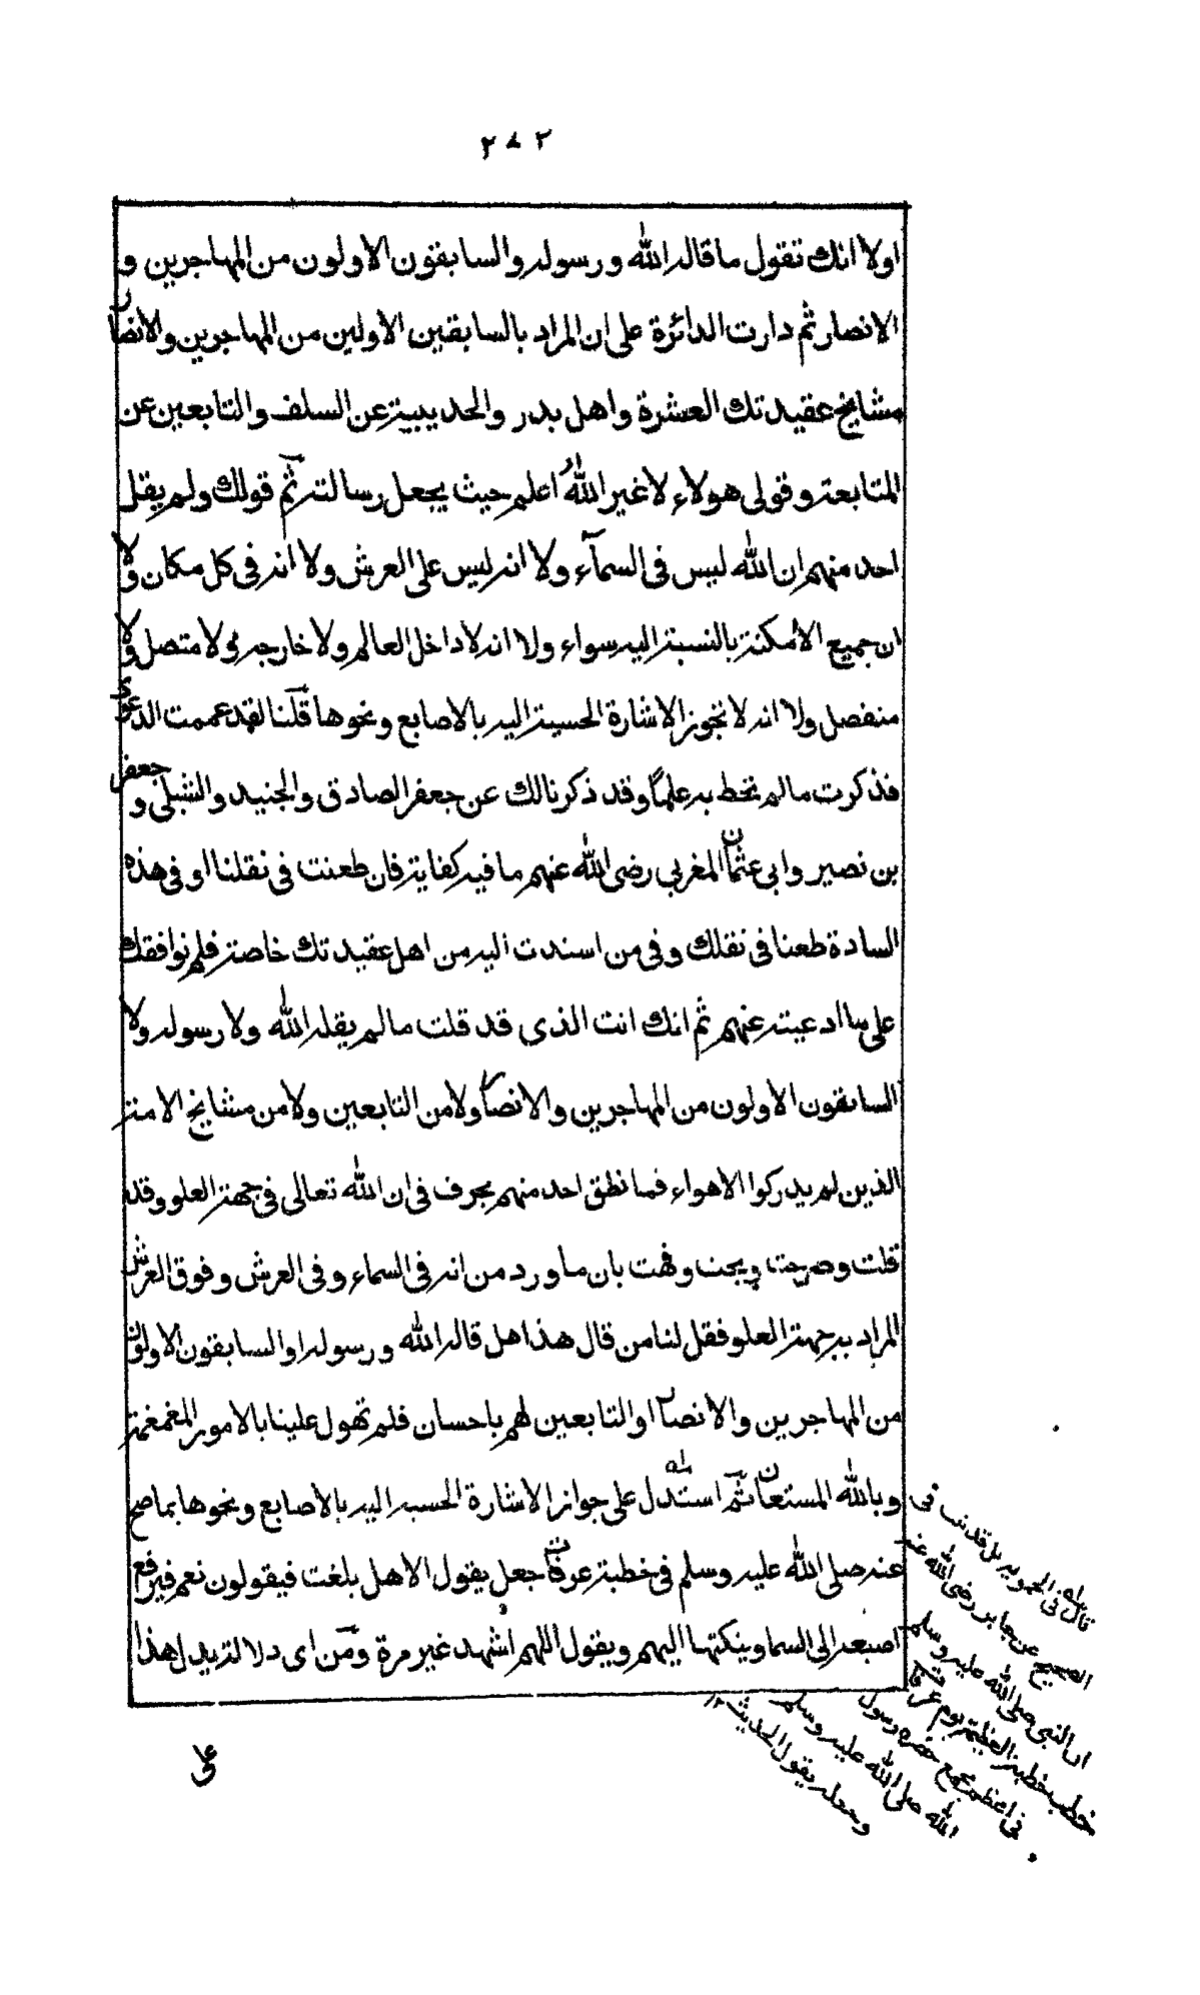 ٢٨٢
اولا انك تقول ما قاله الله ورسوله والسابقون الاولون من المهاجرين و
الانصار ثم دارت الدائرة على ان المراد بالسابقين الاولين من المهاجرين والانصار
مشايخ عقيدتك العشرة واهل بدر والحديبية عن السلف والتابعين عن
المتابعة وقولى هولاء لا غير الله اعلم حيث يجعل رسالته ثم قولك ولم يقل
احد منهم ان الله ليس فى السمآء ولا انه ليس على العرش ولا انه فى كل مكان ولا
ان جميع الامكنة بالنسبة اليه سواء ولا انه لا داخل العالم ولا خارجه ولا متصل ولا
منفصل ولا انه لا تجوز الاشارة الحسية اليه بالاصابع ونحوها قلنا لقد عممت الدعوى
فذكرت ما لم تحط به علما وقد ذكرنا لك عن جعفر الصادق والجنيد والشبلى و جعفر
بن نصير وابى عثمان المغربي رضى الله عنهم ما فيه كفاية فان طعنت فى نقلنا او فى هذه
السادة طعنا فى نقلك وفى من اسندت اليه من اهل عقيدتك خاصة فلم نوافقك
على ما ادعيته عنهم ثم انك انت الذى قد قلت ما لم يقله الله ولا رسوله ولا
السابقون الاولون من المهاجرين والانصار ولا من التابعين ولا من مشايخ الامة
الذين لم يدركوا الاهواء فما نطق احد منهم بحرف فى ان الله تعالى فى جهة العلو وقد
قلت وصرحت وبحت وفهت بان ما ورد من انه فى السماء وفى العرش وفوق العرش
المراد به جهة العلو فقل لنا من قال هذا هل قاله الله ورسوله او السابقون الاولون
من المهاجرين والانصار او التابعين لهم باحسان فلم تهول علينا بالامور المغمغمة
وبالله المستعان ثم استدل على جواز الاشارة الحسيه اليه بالاصابع ونحوها بما صح
عنه صلى الله عليه وسلم فى خطبة عرفات جعل يقول الا هل بلغت فيقولون نعم فيرفع
اصبعه الى السما وينكتها اليهم ويقول اللهم اشهد غير مرة ومن اى دلالة يدل هذا
على
قال فى الحمويه بل قد ثبت فى
الصحيح عن جابر رضى الله عنه
ان النبى صلى الله عليه وسلم
خطب خطبته العظيمة يوم عرفات
فى اعظم مجمع حضره رسول
الله صلى الله عليه وسلم
وجعل يقول الحديث ١٢